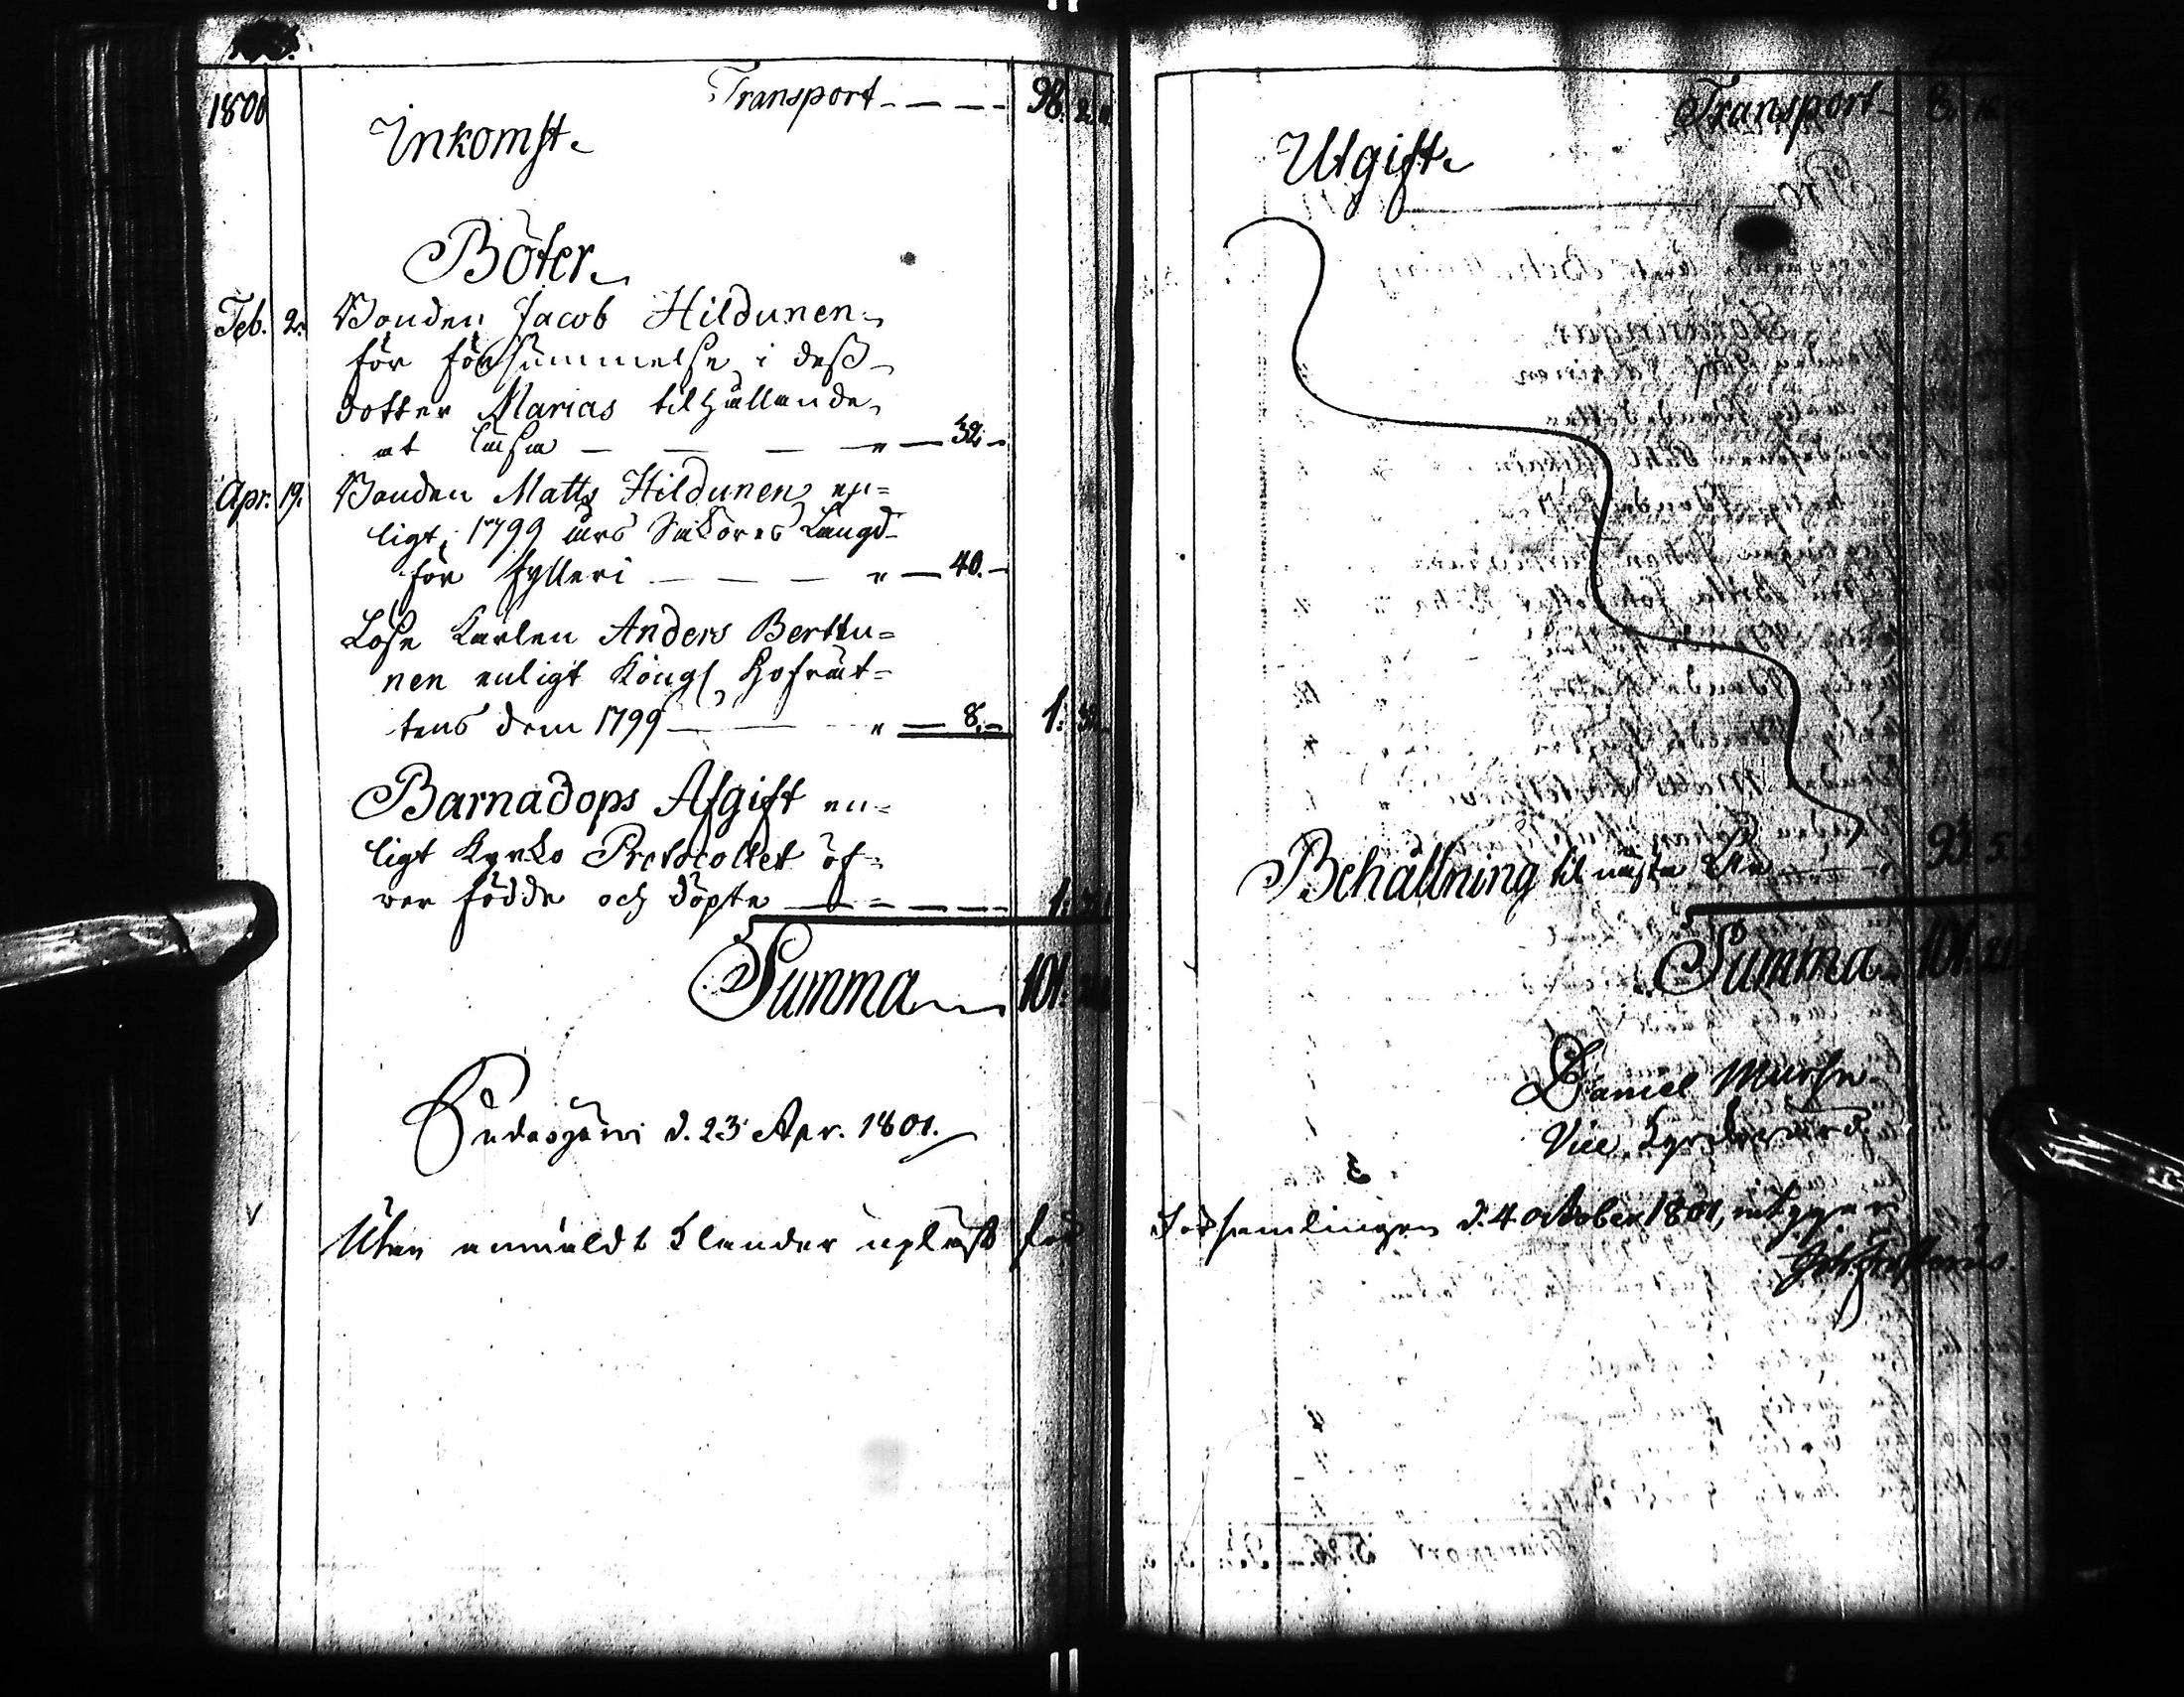 1801
Transport 98. 2.
Inkomst
Böter
Feb. 2. Bonden Jacob Hildunen
för försummelse i dess
dotter Marias tilhållande
at läsa — — — " — 32. —
Apr. 19. Bonden Matts Hildunen en=
ligt 1799 års Saköres Längd
för fylleri — — — " — 40. —
Löse Karlen Anders Berttu=
nen enligt Kongl Hofrät=
tens dom 1799 — " — 8. — 1: 32
Barnadops Afgift en=
ligt Kyrko Protocollet öf=
ver födde och döpte — — — 1:
Summa 101.
Pudasjärvi d. 23 Apr. 1801.
Utan anmäldt klander upläst för
Transport 8. 16
Utgift
Behållning til nästa År 93. 5.
Summa 101. 21
Daniel
Vice
Församlingen d. 4 October 1801, intygar